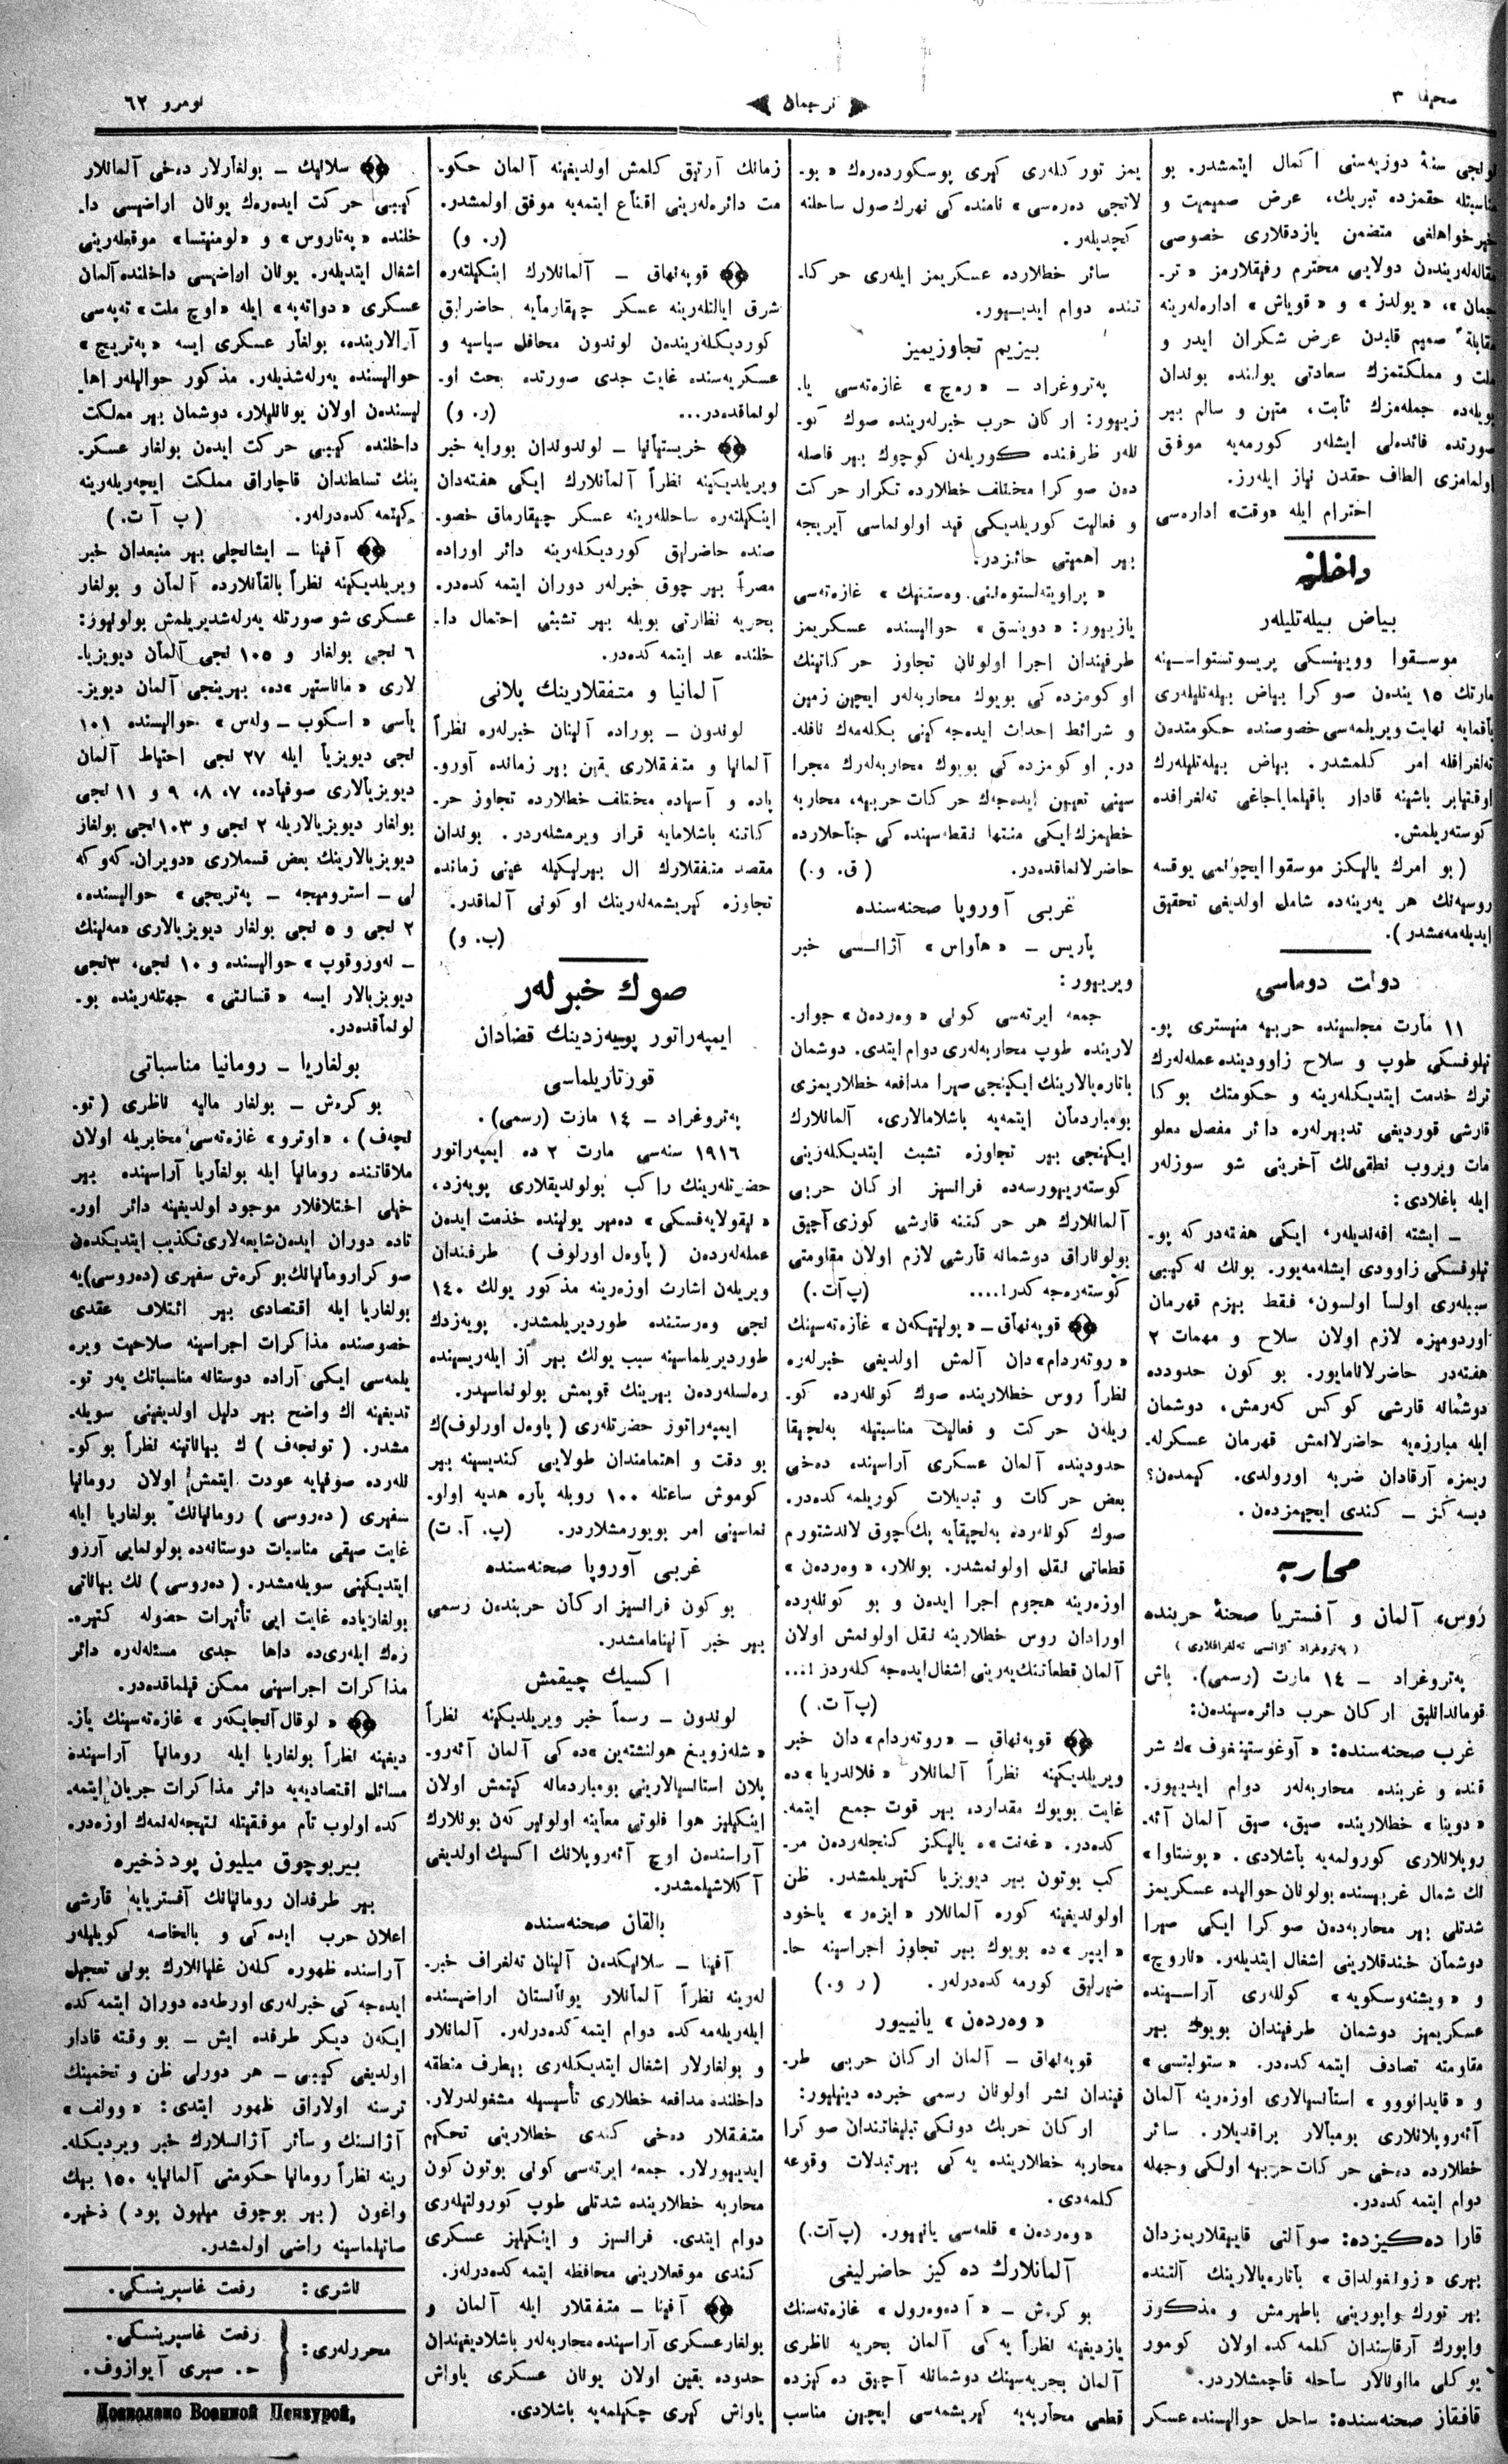 صحیفا ٣
ترجمان
نومرو ٦٢
لولجی سنهٔ دوزیه‌سنی اكمال ایتمشدر. بو
مناسبتله حقمزده تبریك، عرض صمیمیت و
خیرخواهلغی متضمن یازدقلاری خصوصی
مقاله‌لرینده‌ن دولایی محترم رفیقلارمز «تر-
جمان»، «یولدز» و «قویاش» اداره‌لرینه
مقابلة صمیم قلبدن عرض شكران ایدر و
ملت و مملكتمزك سعادتی یولنده بولدان
بویله‌ده جمله‌مزك ثابت، متین و سالم بیر
صورتده فائده‌لی ایشلر كورمه‌یه موفق
اولمامزی الطاف حقدن نیاز ایله‌رز.
احترام ایله «وقت» اداره‌سی
داخلیه
بیاض بیله‌تلیله‌ر
موسقوا وویینسكی پریسوتستواسینه
مارتك ١٥ ینده‌ن صوكرا بیاض بیله‌تلیله‌ری
باقمایه نهایت ویریلمه‌سی خصوصنده حكومتده‌ن
ته‌لغرافله امر كلمشدر. بیاض بیله‌تلیله‌رك
اوقتیابر باشینه قادار باقیلمایاجاغی ته‌لغرافده
كوسته‌ریلمش.
(بو امرك یالیكز موسقوا ایچونمی یوقسه
روسیه‌نك هر یه‌رینه‌ده شامل اولدیغی تحقیق
ایدیله‌مه‌مشدر).
دولت دوماسی
١١ مارت مجلسینده حربیه منیستری پو-
تیلوفسكی طوپ و سلاح زاوودینده عمله‌له‌رك
ترك خدمت ایتدیكله‌رینه و حكومتك بوكا
قارشی قوردیغی تدبیرله‌ره دائر مفصل معلو
مات ویروب نطقی‌نك آخرینی شو سوزله‌ر
ایله باغلادی:
ـ ایشته افه‌ندیله‌ر، ایكی هفته‌در كه پو-
تیلوفسكی زاوودی ایشله‌مه‌یور. بونك نه كیبی
سببله‌ری اولسا اولسون، فقط بیزم قهرمان
اوردومیزه لازم اولان سلاح و مهمات ٢
هفته‌در حاضرلانمایور. بو كون حدودده
دوشمانه قارشی كوكس كه‌رمش، دوشمان
ایله مبارزه‌یه حاضرلانمش قهرمان عسكرله-
ریمزه آرقادان ضربه اورولدی. كیمدن؟
دیسه‌كز ـ كندی ایچیمزدن.
محاربه
روس، آلمان و آفستریا صحنهٔ حربنده
(په‌تروغراد آژانسی ته‌لغرافلاری)
په‌تروغراد ـ ١٤ مارت (رسمی). باش
قوماندانلیق اركان حرب دائره‌سینده‌ن:
غرب صحنه‌سنده: «آوغوستینغوف»ك شر
قنده و غربنده محاربه‌لر دوام ایدیور.
«دوینا» خطلارینده صیق، صیق آلمان آئه-
روپلانلاری كورولمه‌یه باشلادی. «پوستاوا»
نك شمال غربیسنده بولونان حوالیده عسكریمز
شدتلی بیر محاربه‌دن صوكرا ایكی صیرا
دوشمان خندقلارینی اشغال ایتدیله‌ر. «ناروچ»
و «ویشنه‌وسكویه» كوللری آراسینده
عسكریمیز دوشمان طرفیندان بویوك بیر
مقاومته تصادف ایتمه‌كده‌در. «ستولیتسی»
و «قایدانووو» استانسیالاری اوزه‌رینه آلمان
آئه‌روپلانلاری بومبالار براقدیلار. سائر
خطلارده ده‌خی حركات حربیه اولكی وجهله
دوام ایتمه‌كده‌در.
قارا ده‌كیزده: صوآلتی قاییقلاریمزدان
بیری «زونغولداق» باتاره‌یالارینك آلتنده
بیر تورك واپورینی باطیرمش و مذكور
واپورك آرقاسندان كیلمه‌كده اولان كومور
یوكلی ماوونالار ساحله قاچمشلاردر.
قافقاز صحنه‌سنده: ساحل حوالیسنده عسكر
یمز توركله‌ری كیری پوسكورده‌ره‌ك «بو-
لانجی ده‌ره‌سی» نامنده‌كی نهرك صول ساحلنه
كچدیله‌ر.
سائر خطلارده عسكریمز ایله‌ری حركا-
تنده دوام ایدییور.
بیزیم تجاوزیمیز
په‌تروغراد ـ «ره‌چ» غازه‌ته‌سی یا-
زییور: اركان حرب خبرله‌رینده صوك كو-
نله‌ر ظرفنده كوریله‌ن كوچوك بیر فاصله
ده‌ن صوكرا مختلف خطلارده تكرار حركت
و فعالیت كوریلدیكی قید اولونماسی آیریجه
بیر اهمیتی حائزدر.
«پراویته‌لستوه‌ننی وه‌ستنیك» غازه‌ته‌سی
یازییور: «دوینسق» حوالیسنده عسكریمز
طرفیندان اجرا اولونان تجاوز حركاتینك
اوكومزده‌كی بویوك محاربه‌له‌ر ایچین زمین
و شرائط احداث ایده‌جه‌كینی بكله‌مه‌ك نافله-
در. اوكومزده‌كی بویوك محاربه‌له‌رك مجرا
سینی تعیین ایده‌جه‌ك حركات حربیه، محاربه
خطیمزك ایكی منتها نقطه‌سینده‌كی جناحلارده
حاضرلانماقده‌در. (ق. و.)
غربی آوروپا صحنه‌سنده
پاریس ـ «هاواس» آژانسی خبر
ویرییور:
جمعه ایرته‌سی كونی «وه‌رده‌ن» جوار-
لارینده طوپ محاربه‌له‌ری دوام ایتدی. دوشمان
باتاره‌یالارینك ایكینجی صیرا مدافعه خطلاریمزی
بومباردمان ایتمه‌یه باشلامالاری، آلمانلارك
ایكینجی بیر تجاوزه تشبث ایتدیكله‌زینی
كوسته‌رییورسه‌ده فرانسیز اركان حربی
آلمانلارك هر حركتنه قارشی كوزی آچیق
بولوناراق دوشمانه قارشی لازم اولان مقاومتی
كوسته‌ره‌جه‌كدر!.... (پ آت.)
قوپه‌نهاق ـ «پولیتیكه‌ن» غازه‌ته‌سینك
«روته‌ردام»دان آلمش اولدیغی خبرله‌ره
نظراً روس خطلارینده صوك كونله‌رده كو-
ریله‌ن حركت و فعالیت مناسبتیله به‌لچیقا
حدودینده آلمان عسكری آراسینده ده‌خی
بعض حركات و تبدیلات كوریلمه‌كده‌در.
صوك كونله‌رده به‌لچیقایه پك چوق لاندشتورم
قطعاتی نقل اولونمشدر. بونلار، «وه‌رده‌ن»
اوزه‌رینه هجوم اجرا ایده‌ن و بو كونله‌رده
اورادان روس خطلارینه نقل اولونمش اولان
آلمان قطعاتنك یه‌رینی اشغال ایده‌جه‌كله‌ردر!...
(پ آ ت.)
قوپه‌نهاق ـ «روته‌ردام»دان خبر
ویریلدیكینه نظراً آلمانلار «فلاندریا»ده
غایت بویوك مقدارده بیر قوت جمع ایتمه-
كده‌در. «غه‌نت»ه یالیكز كنجله‌رده‌ن مر-
كب بوتون بیر دیویزیا كتیریلمشدر. ظن
اولوندیغینه كوره آلمانلار «ایزه‌ر» یاخود
«ایپر»ده بویوك بیر تجاوز اجراسینه حا-
ضیرلیق كورمه‌كده‌درله‌ر. (ر و.)
«وه‌رده‌ن» یانییور
قوپه‌نهاق ـ آلمان اركان حربی طر-
فیندان نشر اولونان رسمی خبرده دینیلیور:
اركان حربك دونكی تبلیغاتندان صوكرا
محاربه خطلارینده یه‌كی بیر تبدلات وقوعه
كلمه‌دی.
«وه‌رده‌ن» قلعه‌سی یانییور. (پ آت.)
آلمانلارك ده‌كیز حاضرلیغی
بوكره‌ش ـ «آده‌وه‌رول» غازه‌ته‌سنك
یازدیغینه نظراً یه‌كی آلمان بحریه ناظری
آلمان بحریه‌سینك دوشمانله آچیق ده‌كیزده
قطعی محاربه‌یه كیریشمه‌سی ایچین مناسب
زمانك آرتیق كلمش اولدیغینه آلمان حكو-
مت دائره‌له‌رینی اقناع ایتمه‌یه موفق اولمشدر.
(ر. و)
قوپه‌نهاق ـ آلمانلارك اینكیلتره
شرق ایالتله‌رینه عسكر چیقارمایه حاضرلیق
كوردیكله‌رینده‌ن لوندون محافل سیاسیه و
عسكریه‌سنده غایت جدی صورتده بحث او-
لونماقده‌در... (ر. و)
خریستیانیا ـ لوندوندان بورایه خبر
ویریلدیكینه نظراً آلمانلارك ایكی هفته‌دان
اینكیلتره ساحللرینه عسكر چیقارماق خصو-
صنده حاضرلیق كوردیكله‌رینه دائر اوراده
مصراً بیر چوق خبرله‌ر دوران ایتمه‌كده‌در.
بحریه نظارتی بویله بیر تشبثی احتمال دا-
خلنده عد ایتمه‌كده‌در.
آلمانیا و متفقلارینك پلانی
لوندون ـ بوراده آلینان خبرله‌ره نظراً
آلمانیا و متفقلاری یقین بیر زمانده آورو-
پاده و آسیاده مختلف خطلارده تجاوز حر-
كاتنه باشلامایه قرار ویرمشله‌ردر. بوندان
مقصد متفقلارك ال بیرلیكیله عینی زمانده
تجاوزه كیریشمه‌له‌رینك اوكونی آلماقدر.
(ب. و)
صوك خبرله‌ر
ایمپه‌راتور پویه‌زدینك قضادان
قورتاریلماسی
په‌تروغراد ـ ١٤ مارت (رسمی).
١٩١٦ سنه‌سی مارت ٢ ده ایمپه‌راتور
حضرتله‌رینك راكب بولوندیقلاری پویه‌زد،
«نیقولایه‌فسكی» ده‌میر یولینده خدمت ایده‌ن
عمله‌له‌رده‌ن (پاوه‌ل اورلوف) طرفندان
ویریله‌ن اشارت اوزه‌رینه مذكور یولك ١٤٠
نجی وه‌رستنده طوردیریلمشدر. پویه‌زدك
طوردیریلماسینه سبب یولك بیر آز ایله‌ریسینده
ره‌لسله‌رده‌ن بیرینك قوپمش بولونماسیدر.
ایمپه‌راتور حضرتله‌ری (پاوه‌ل اورلوف)ك
بو دقت و اهتمامندان طولایی كندیسینه بیر
كوموش ساعتله ١٠٠ روبله پاره هدیه اولو-
نماسینی امر بویورمشلاردر. (پ. آ. ت)
غربی آوروپا صحنه‌سنده
بوكون فرانسیز اركان حربنده‌ن رسمی
بیر خبر آلینامامشدر.
اكسیك چیقمش
لوندون ـ رسماً خبر ویریلدیكینه نظراً
«شله‌زویغ هولشته‌ین»ده‌كی آلمان آئه‌رو-
پلان استانسیالارینی بومباردمانه كیتمش اولان
اینكیلیز هوا فلوتی معاینه اولونیركه‌ن بونلارك
آراسنده‌ن اوچ آئه‌روپلانك اكسیك اولدیغی
آكلاشیلمشدر.
بالقان صحنه‌سنده
آفینا ـ سلانیكده‌ن آلینان ته‌لغراف خبر-
له‌رینه نظراً آلمانلار یونانستان اراضیسنده
ایله‌ریله‌مه‌كده دوام ایتمه‌كده‌درله‌ر. آلمانلار
و بولغارلار اشغال ایتدیكله‌ری بیطرف منطقه
داخلنده مدافعه خطلاری تأسیسیله مشغولدرلار.
متفقلار ده‌خی كندی خطلارینی تحكیم
ایدییورلار. جمعه ایرته‌سی كونی بوتون كون
محاربه خطلارینده شدتلی طوپ كورولتیله‌ری
دوام ایتدی. فرانسیز و اینكیلیز عسكری
كندی موقعلارینی محافظه ایتمه‌كده‌درله‌ر.
آفینا ـ متفقلار ایله آلمان و
بولغار عسكری آراسینده محاربه‌له‌ر باشلادیغیندان
حدوده یقین اولان یونان عسكری یاواش
یاواش كیری چكیلمه‌یه باشلادی.
سلانیك ـ بولغارلار ده‌خی آلمانلار
كیبی حركت ایده‌ره‌ك یونان اراضیسی دا-
خلنده «په‌تاروس» و «لومنیتسا» موقعله‌رینی
اشغال ایتدیله‌ر. یونان اراضیسی داخلنده آلمان
عسكری «دواته‌په» ایله «اوچ ملت» ته‌په‌سی
آرالارینده، بولغار عسكری ایسه «په‌تریچ»
حوالیسنده یه‌رله‌شدیله‌ر. مذكور حوالیله‌ر اها-
لیسنده‌ن اولان یونانلیلار، دوشمان بیر مملكت
داخلنده كیبی حركت ایده‌ن بولغار عسكر-
ینك تسلطندان قاچاراق مملكت ایچه‌ریله‌رینه
كیتمه‌كده‌درله‌ر. (پ آ ت.)
آفینا ـ ایشانچلی بیر منبعدان خبر
ویریلدیكینه نظراً بالقانلارده آلمان و بولغار
عسكری شو صورتله یه‌رله‌شدیریلمش بولونیور:
٦ نجی بولغار و ١٠٥ نجی آلمان دیویزیا-
لاری «ماناستیر»ده، بیرینجی آلمان دیویز-
یاسی «اسكوب ـ وله‌س» حوالیسنده ١٠١
نجی دیویزیا ایله ٢٧ نجی احتیاط آلمان
دیویزیالاری صوفیاده، ٧، ٨، ٩ و ١١ نجی
بولغار دیویزیالاریله ٢ نجی و ١٠٣ نجی بولغار
دیویزیالارینك بعض قسملاری «دویران ـ كه‌وكه
لی ـ استرومیجه ـ په‌تریچی» حوالیسنده،
٢ نجی و ٥ نجی بولغار دیویزیالاری «مه‌لینك
ـ نه‌وزوقوپ» حوالیسنده و ١٠ نجی، ٣ نجی
دیویزیالار ایسه «قسانتی» جهتله‌رینده بو-
لونماقده‌در.
بولغاریا ـ رومانیا مناسباتی
بوكره‌ش ـ بولغار مالیه ناظری (تو-
نچه‌ف)، «اوترو» غازه‌ته‌سی مخابریله اولان
ملاقاتنده رومانیا ایله بولغاریا آراسینده بیر
خیلی اختلافلار موجود اولدیغینه دائر اور-
تاده دوران ایده‌ن شایعه‌لاری تكذیب ایتدیكده‌ن
صوكرا رومانیانك بوكره‌ش سفیری (ده‌روسی)یه
بولغاریا ایله اقتصادی بیر ائتلاف عقدی
خصوصنده مذاكرات اجراسینه صلاحیت ویره
یلمه‌سی ایكی آراده دوستانه مناسباتك یه‌ر تو-
تدیغینه اك واضح بیر دلیل اولدیغینی سویله-
مشدر. (تونچه‌ف)ك بیاناتینه نظراً بو كو-
نله‌رده صوفیایه عودت ایتمش اولان رومانیا
سفیری (ده‌روسی) رومانیانك بولغاریا ایله
غایت صیقی مناسبات دوستانه‌ده بولونمایی آرزو
ایتدیكینی سویله‌مشدر. (ده‌روسی)نك بیاناتی
بولغاریاده غایت ایی تأثیرات حصوله كتیره-
ره‌ك ایله‌ری‌ده داها جدی مسئله‌له‌ره دائر
مذاكرات اجراسینی ممكن قیلماقده‌در.
«لوقال آنجایكه‌ر» غازه‌ته‌سینك یاز-
دیغینه نظراً بولغاریا ایله رومانیا آراسینده
مسائل اقتصادیه‌یه دائر مذاكرات جریان ایتمه-
كده اولوب تام موفقیتله نتیجه‌له‌نمه‌ك اوزه‌ره‌در.
بیربوچوق میلیون پود ذخیره
بیر طرفدان رومانیانك آفستریایه قارشی
اعلان حرب ایده‌كی و بالخاصه كویلیله‌ر
آراسنده ظهوره كله‌ن غلیانلارك بونی تعجیل
ایده‌جه‌كی خبرله‌ری اورطه‌ده دوران ایتمه‌كده
ایكه‌ن دیكر طرفده ایش ـ بو وقته قادار
اولدیغی كیبی ـ هر دورلی ظن و تخمینك
ترسنه اولاراق ظهور ایتدی: «وولف»
آژانسنك و سائر آژانسلارك خبر ویردیكله-
رینه نظراً رومانیا حكومتی آلمانیایه ١٥٠ بیك
واغون (بیر بوچوق میلیون پود) ذخیره
صاتیلماسینه راضی اولمشدر.
ناشری: رفعت غاسپرینسكی.
محررله‌ری: رفعت غاسپرینسكی.
ح. صبری آیوازوف.
Дозволено Военной Цензурой,